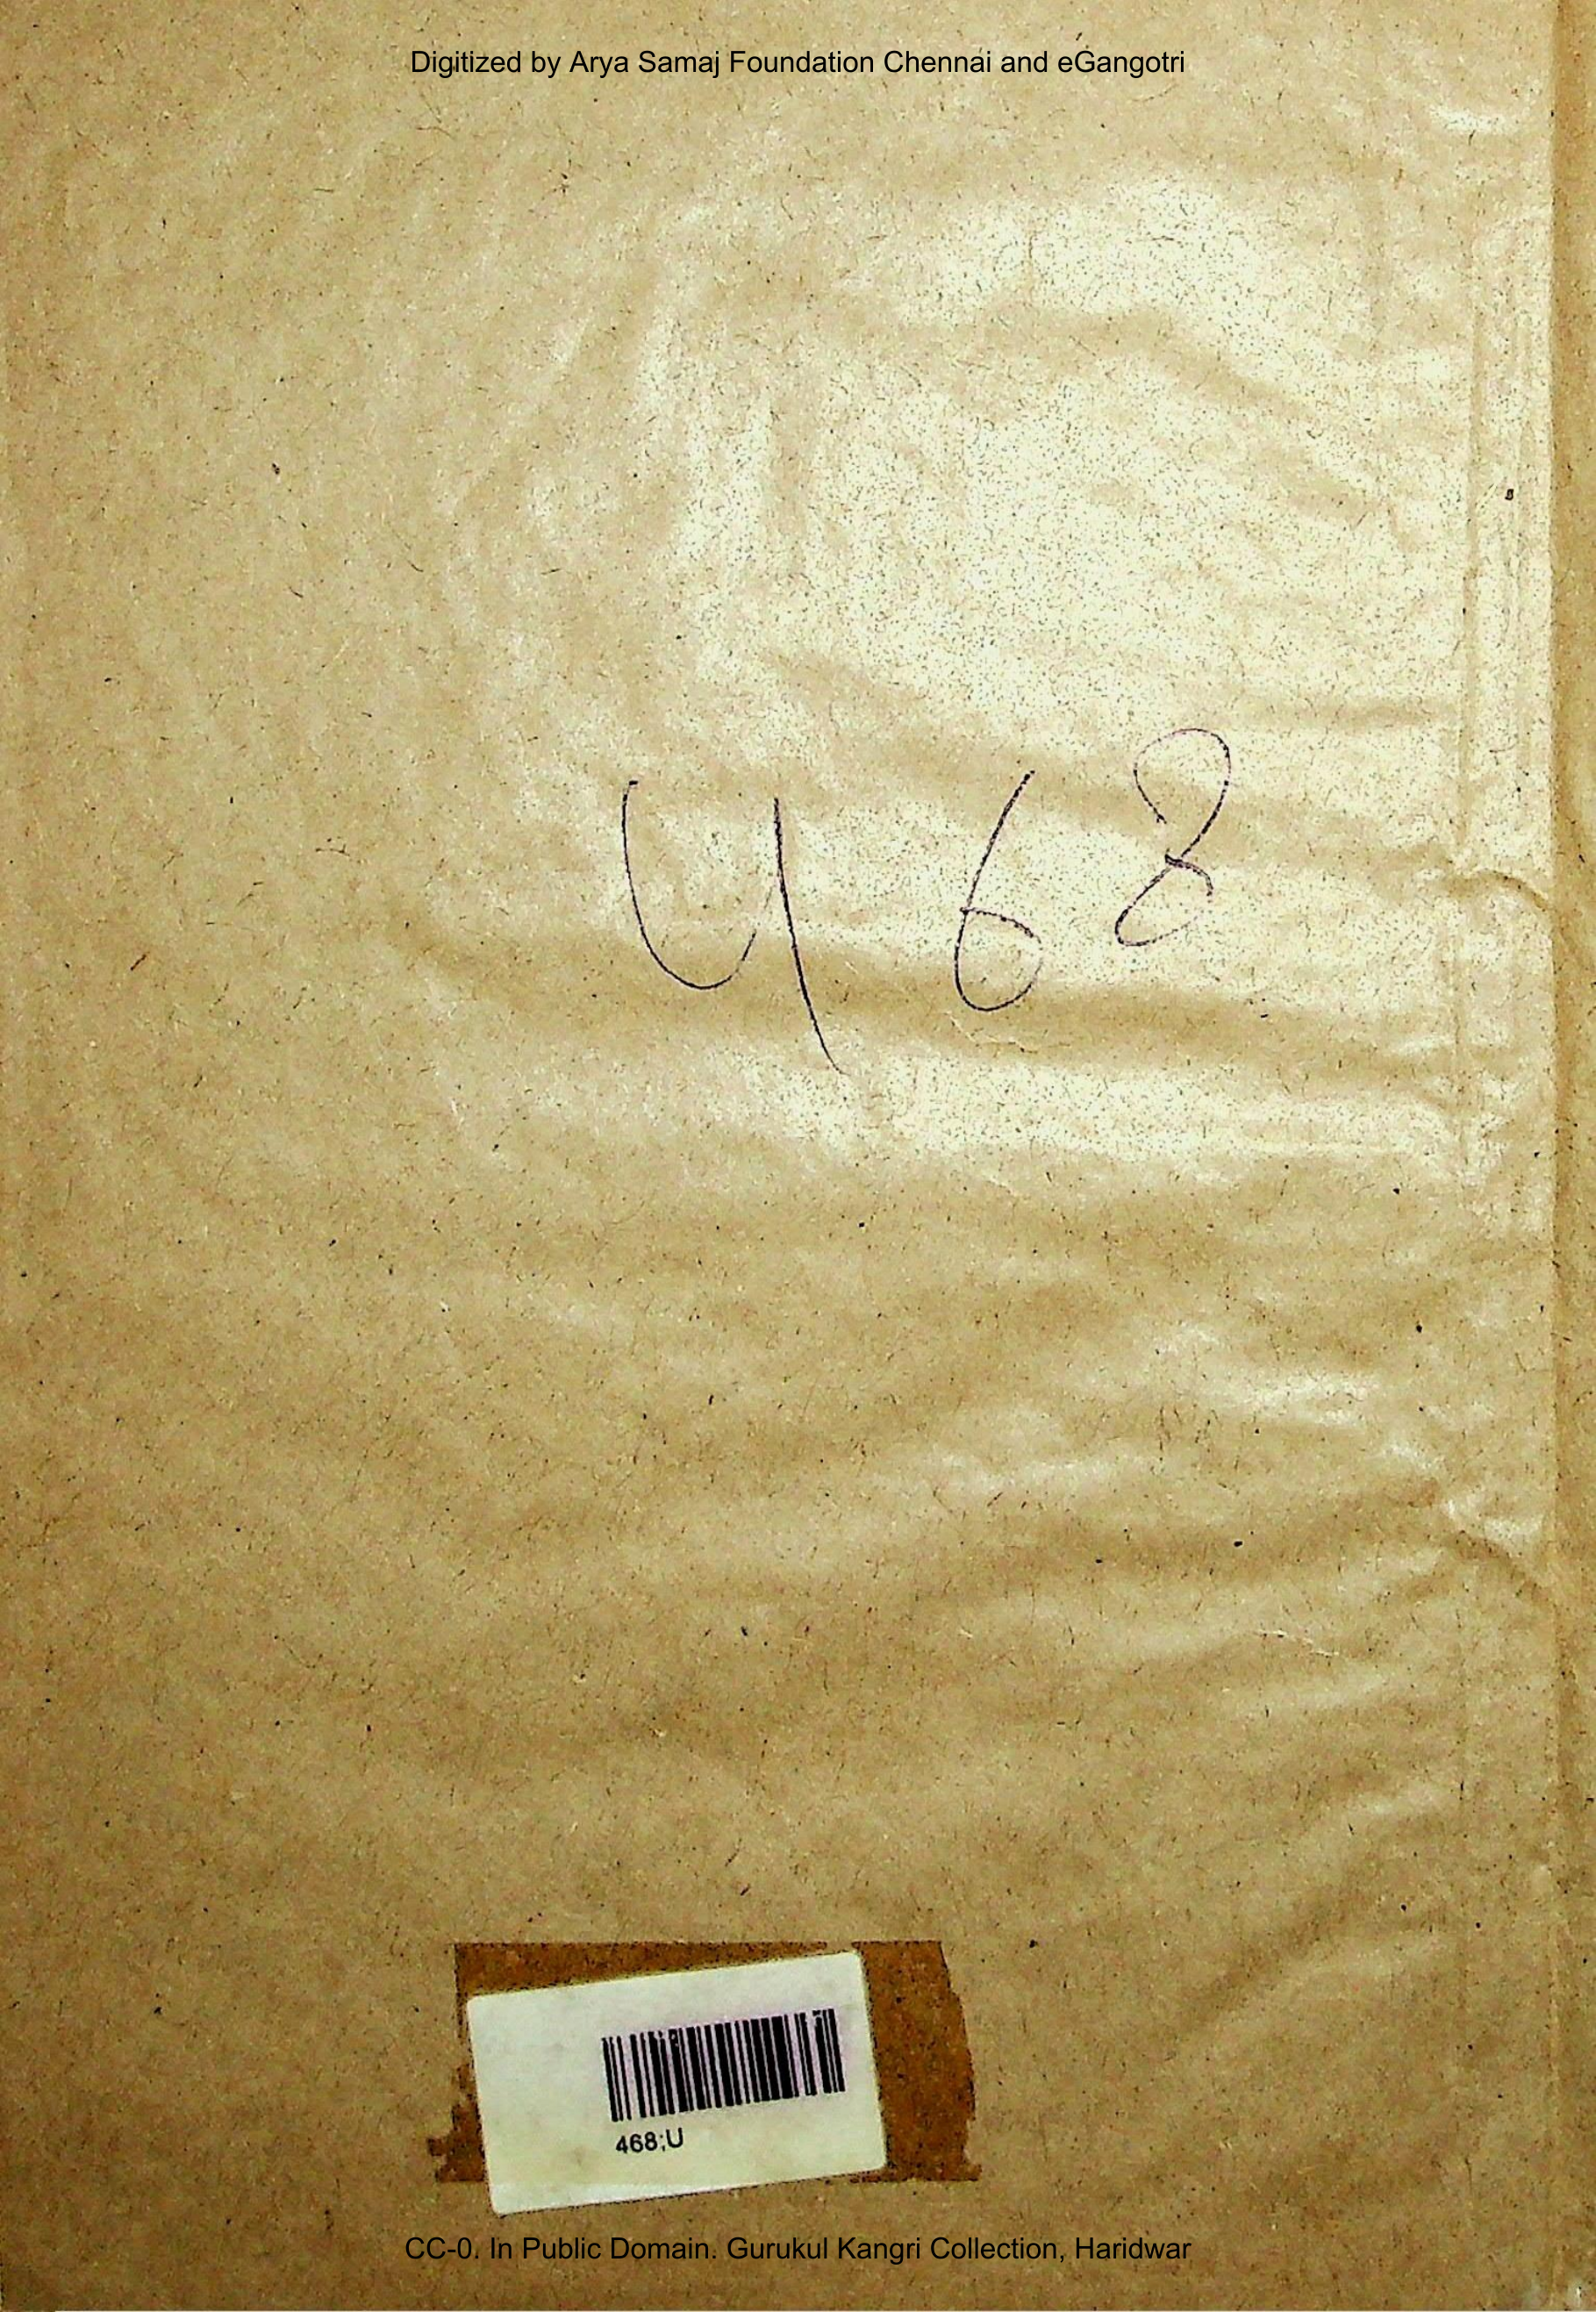 Digitized by Arya Samaj Foundation Chennai and eGangotri
468
468;U
CC-0. In Public Domain. Gurukul Kangri Collection, Haridwar